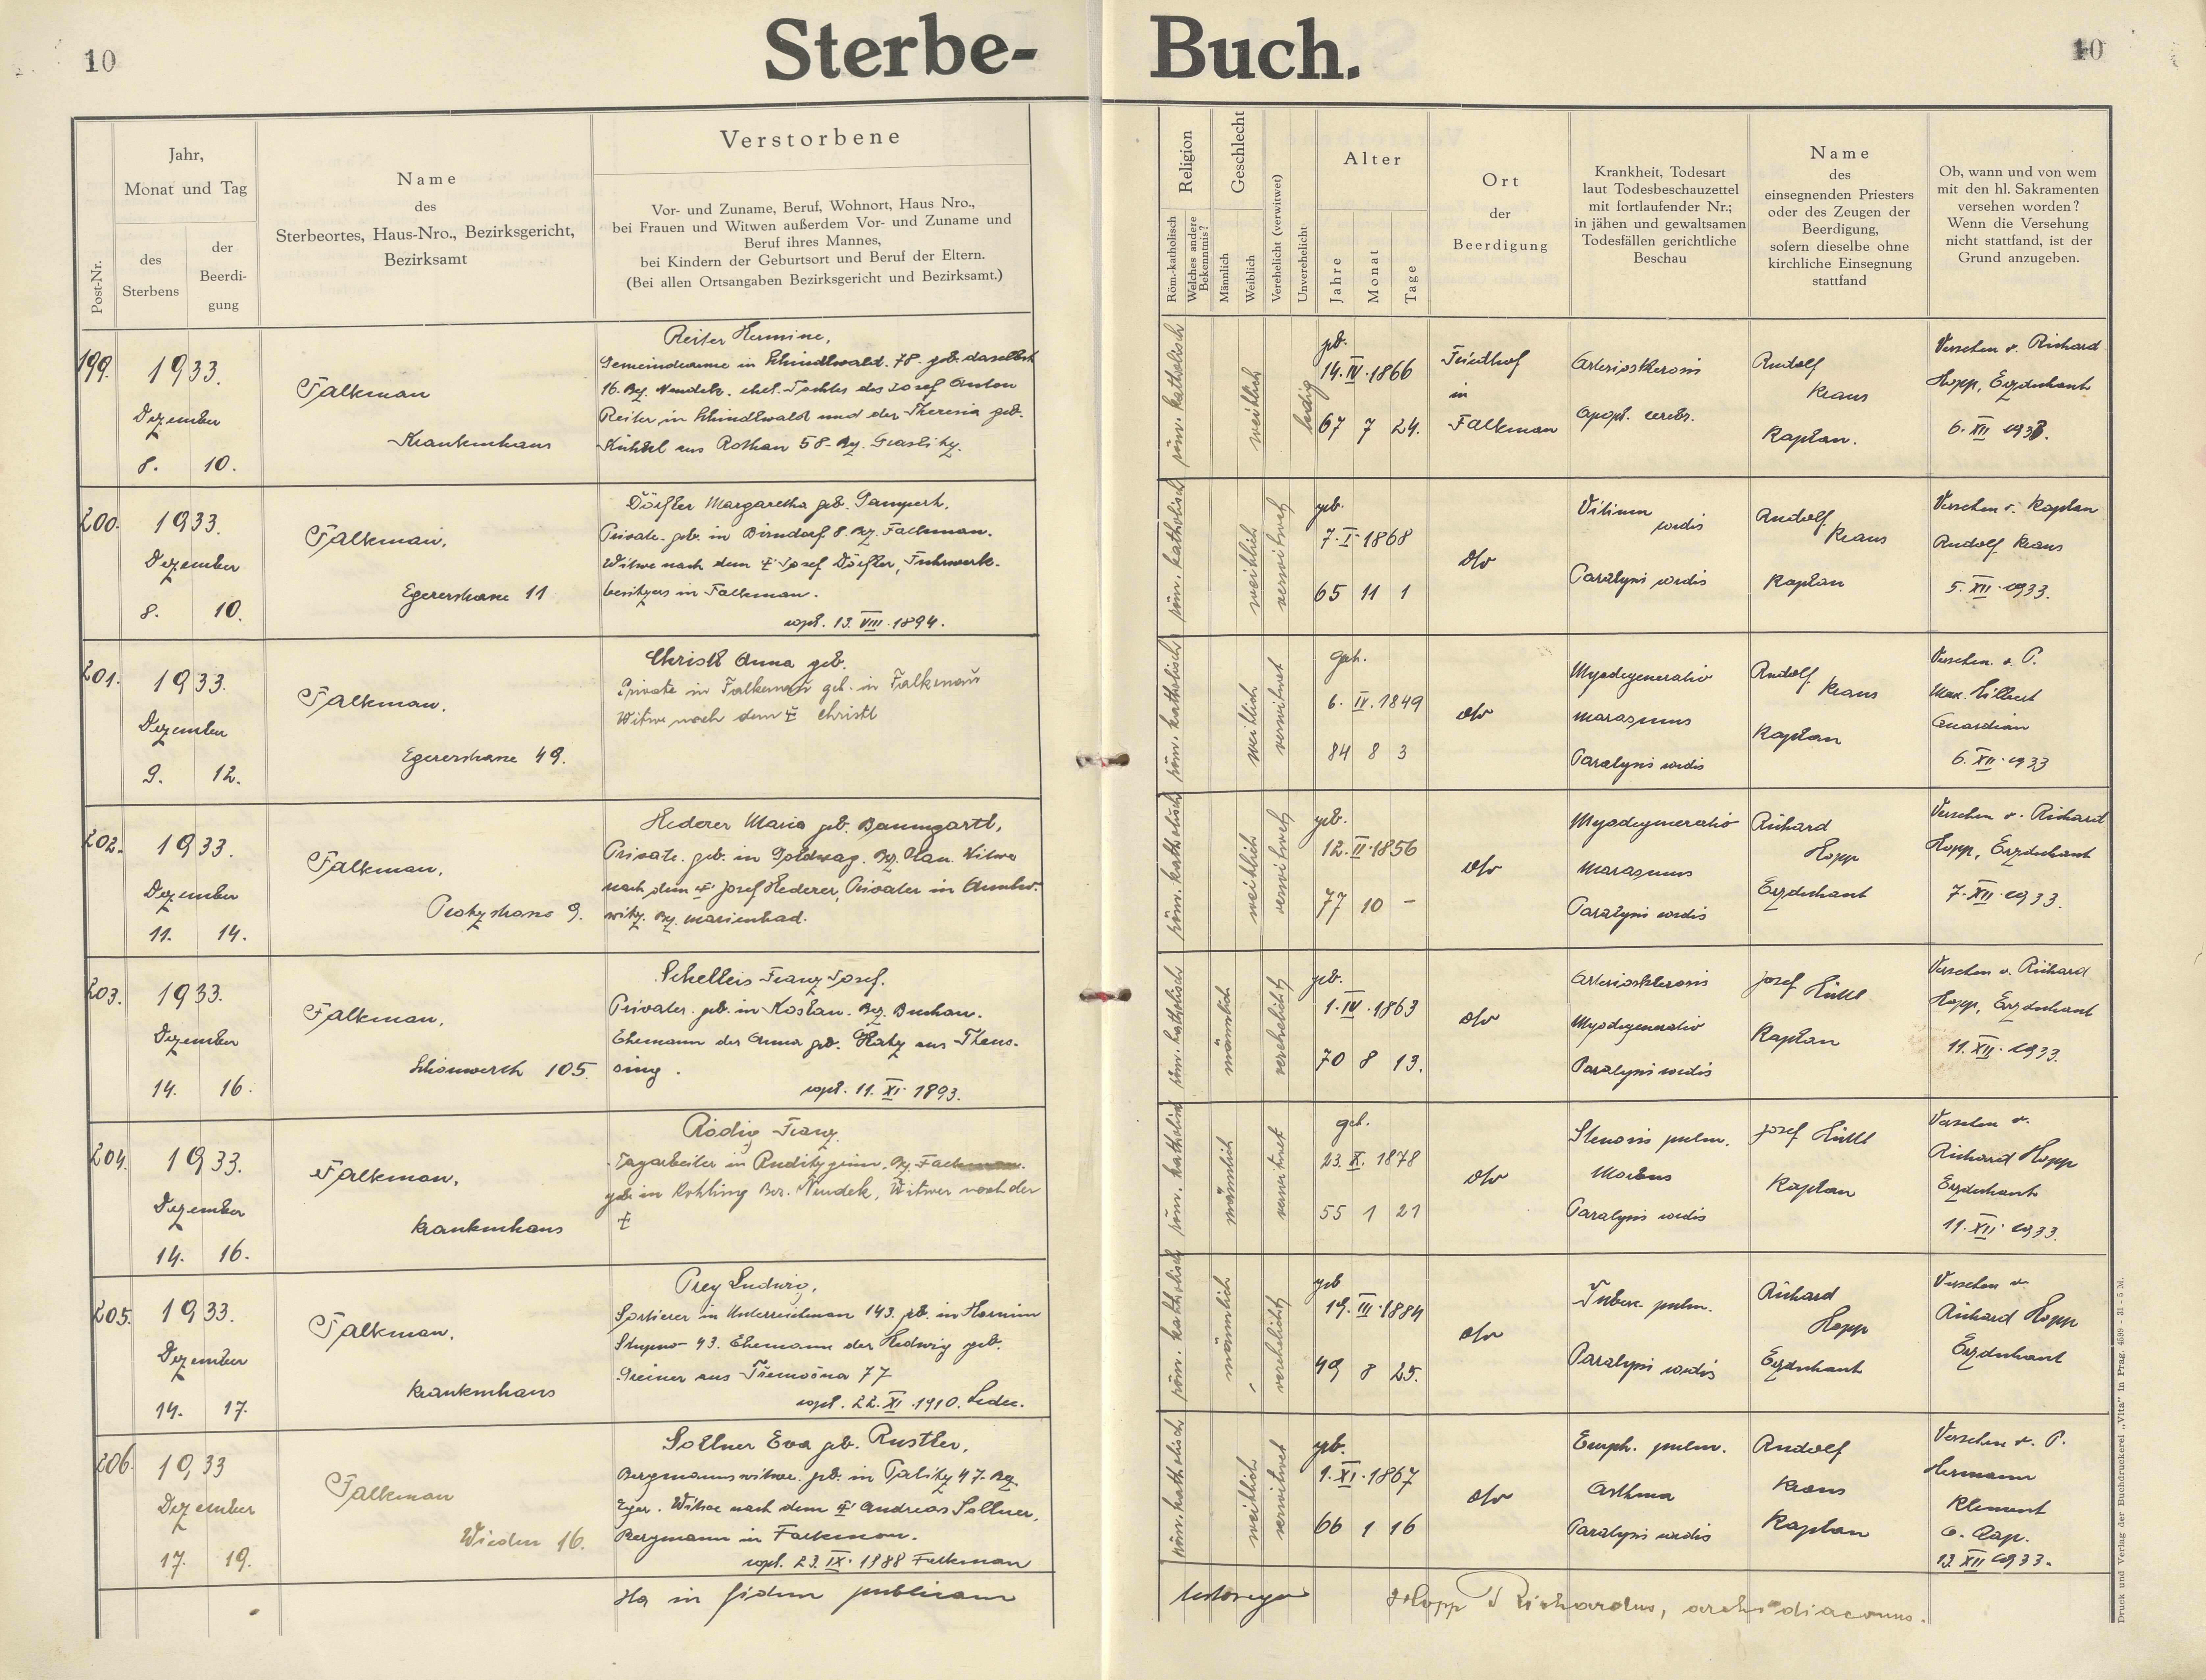 10
Sterbe-
Buch.
10
Post-Nr.
Jahr,
Monat und Tag
des
Sterbens
der
Beerdi-
gung
Name
des
Sterbeortes, Haus-Nro., Bezirksgericht,
Bezirksamt
Verstorbene
Vor- und Zuname, Beruf, Wohnort, Haus Nro.,
bei Frauen und Witwen außerdem Vor- und Zuname und
Beruf ihres Mannes,
bei Kindern der Geburtsort und Beruf der Eltern.
(Bei allen Ortsangaben Bezirksgericht und Bezirksamt.)
Religion
Röm.-katholisch
Welches andere
Bekenntnis?
Geschlecht
Männlich
Weiblich
Verehelicht (verwitwet)
Unverehelicht
Alter
Jahre
Monat
Tage
Ort
der
Beerdigung
Krankheit, Todesart
laut Todesbeschauzettel
mit fortlaufender Nr.;
in jähen und gewaltsamen
Todesfällen gerichtliche
Beschau
Name
des
einsegnenden Priesters
oder des Zeugen der
Beerdigung,
sofern dieselbe ohne
kirchliche Einsegnung
stattfand
Ob, wann und von wem
mit den hl. Sakramenten
versehen worden?
Wenn die Versehung
nicht stattfand, ist der
Grund anzugeben.
199.
1933.
Dezember
8. 10.
Falkenau
Krankenhaus
Reiter Hermine,
Gemeindearme in Schindlwald. 78. geb. daselbst
16. Bz. Neudek. ehel. Tochter des Josef Anton
Reiter in Schindlwald und der Theresia geb.
aus Rothau 58. Bz. Graslitz.
röm. katholisch
weiblich
ledig
geb.
14. IV. 1866
67 7 24.
Friedhof
in
Falkenau
Arteriosklerosis
Apopl. cerebr.
Rudolf
Kraus
Kaplan.
Versehen v. Richard
Hopp, Erzdechant
6. XII 1933.
200.
1933.
Dezember
8. 10.
Falkenau,
Egererstrasse 11
Dörfler Margaretha geb. Gampert,
Private. geb. in Birndorf 8. Bz. Falkenau.
Witwe nach dem † Josef Dörfler, Fuhrwerk-
besitzers in Falkenau.
copl. 13. VIII. 1894.
röm. katholisch
weiblich
verwitwet
geb.
7. I. 1868
65 11 1
dto
Vitium
cordis
Paralysis cordis
Rudolf
Kraus
Kaplan
Versehen v. Kaplan
Rudolf Kraus
5. XII. 1933.
201.
1933.
Dezember
9. 12.
Falkenau,
Egererstrasse 49.
Christl Anna geb.
Private in Falkenau geb. in Falkenau
Witwe nach dem † Christl
röm. katholisch
weiblich
verwitwet
geb.
6. IV. 1849
84 8 3
dto
Myodegeneratio
Marasmus
Paralysis cordis
Rudolf
Kraus
Kaplan
Versehen. v. P.
Max.
Guardian
6. XII. 1933
202.
1933.
Dezember
11. 14.
Falkenau,
9.
Hederer Maria geb. Baumgartl,
Private. geb. in Goldwag. Bz. Plan. Witwe
nach dem † Josef Hederer, Privater in
witz. Bz. Marienbad.
röm. katholisch
weiblich
verwitwet
geb.
12. II. 1856
77 10 -
dto
Myodegeneratio
Marasmus
Paralysis cordis
Richard
Hopp
Erzdechant
Versehen v. Richard
Hopp, Erzdechant
7. XII. 1933.
203.
1933.
Dezember
14. 16.
Falkenau,
Schönwerth 105.
Schelleis Franz Josef.
Privater. geb. in Koslau. Bez. Buchau.
Ehemann der Anna geb. aus Theus-
sing.
copl. 11. XI. 1893.
röm. katholisch
männlich
verehelicht
geb.
1. IV. 1863
70 8 13.
dto
Arteriosklerosis
Myodegeneratio
Paralysis cordis
Josef Hüttl
Kaplan
Versehen v. Richard
Hopp, Erzdechant
11. XII. 1933.
204.
1933.
Dezember
14. 16.
Falkenau,
Krankenhaus
Rödig Franz.
Tagarbeiter in Bz.
geb. in Rohling Bez. Neudek, Witwer nach der
†
röm. katholisch
männlich
verwitwet
geb.
23. X. 1878
55 1 21
dto
Stenosis pulm.
Morbus
Paralysis cordis
Josef Hüttl
Kaplan
Versehen v.
Richard Hopp
Erzdechant
11. XII. 1933.
205.
1933.
Dezember
14. 17.
Falkenau,
Krankenhaus
Prey Ludwig,
Sortierer in Unterreichenau 143. geb. in Hornim
Stupno 43. Ehemann der Hedwig geb.
Greiner aus Třemošna 77
copl. 22. XI. 1910.
röm. katholisch
männlich
verehelicht
geb
19. III. 1884
49 8 25.
dto
Tuberk. pulm.
Paralysis cordis
Richard
Hopp
Erzdechant
Versehen v
Richard Hopp
Erzdechant
206.
1933
Dezember
17. 19.
Falkenau
Wieden 16.
Sollner Eva geb. Rustler,
Bergmannswitwe. geb. in Galitz 47. Bz
Eger. Witwe nach dem † Andreas Sollner,
Bergmann in Falkenau.
copl. 23. IX. 1888 Falkenau
röm. katholisch
weiblich
verwitwet
geb.
1. XI. 1867
66 1 16
dto
Emph. pulm.
Asthma
Paralysis cordis
Rudolf
Kraus
Kaplan
Versehen v. P.
Hermann
Klement
O. Cap.
13. XII 1933.
Ita in fidem publicam
Hopp Richardus, archidiaconus.
Druck und Verlag der Buchdruckerei „Vita" in Prag. 4599 - 31 - 5 M.